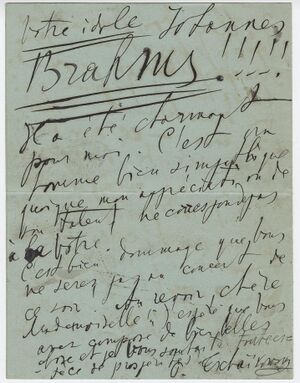 votre idole Johannes
Brahms. !!!!!
Il a été charmant
pour moi. C'est un
homme bien sympathique
quoique mon appréciation de
son talent ne corresponde pas
à la vôtre.
C'est bien dommage que vous
ne serez pas au concert de
ce soir. Au revoir, chère
Mademoiselle; j'espère que vous
avez composé de
chose et je vous souhaite
de prospérité